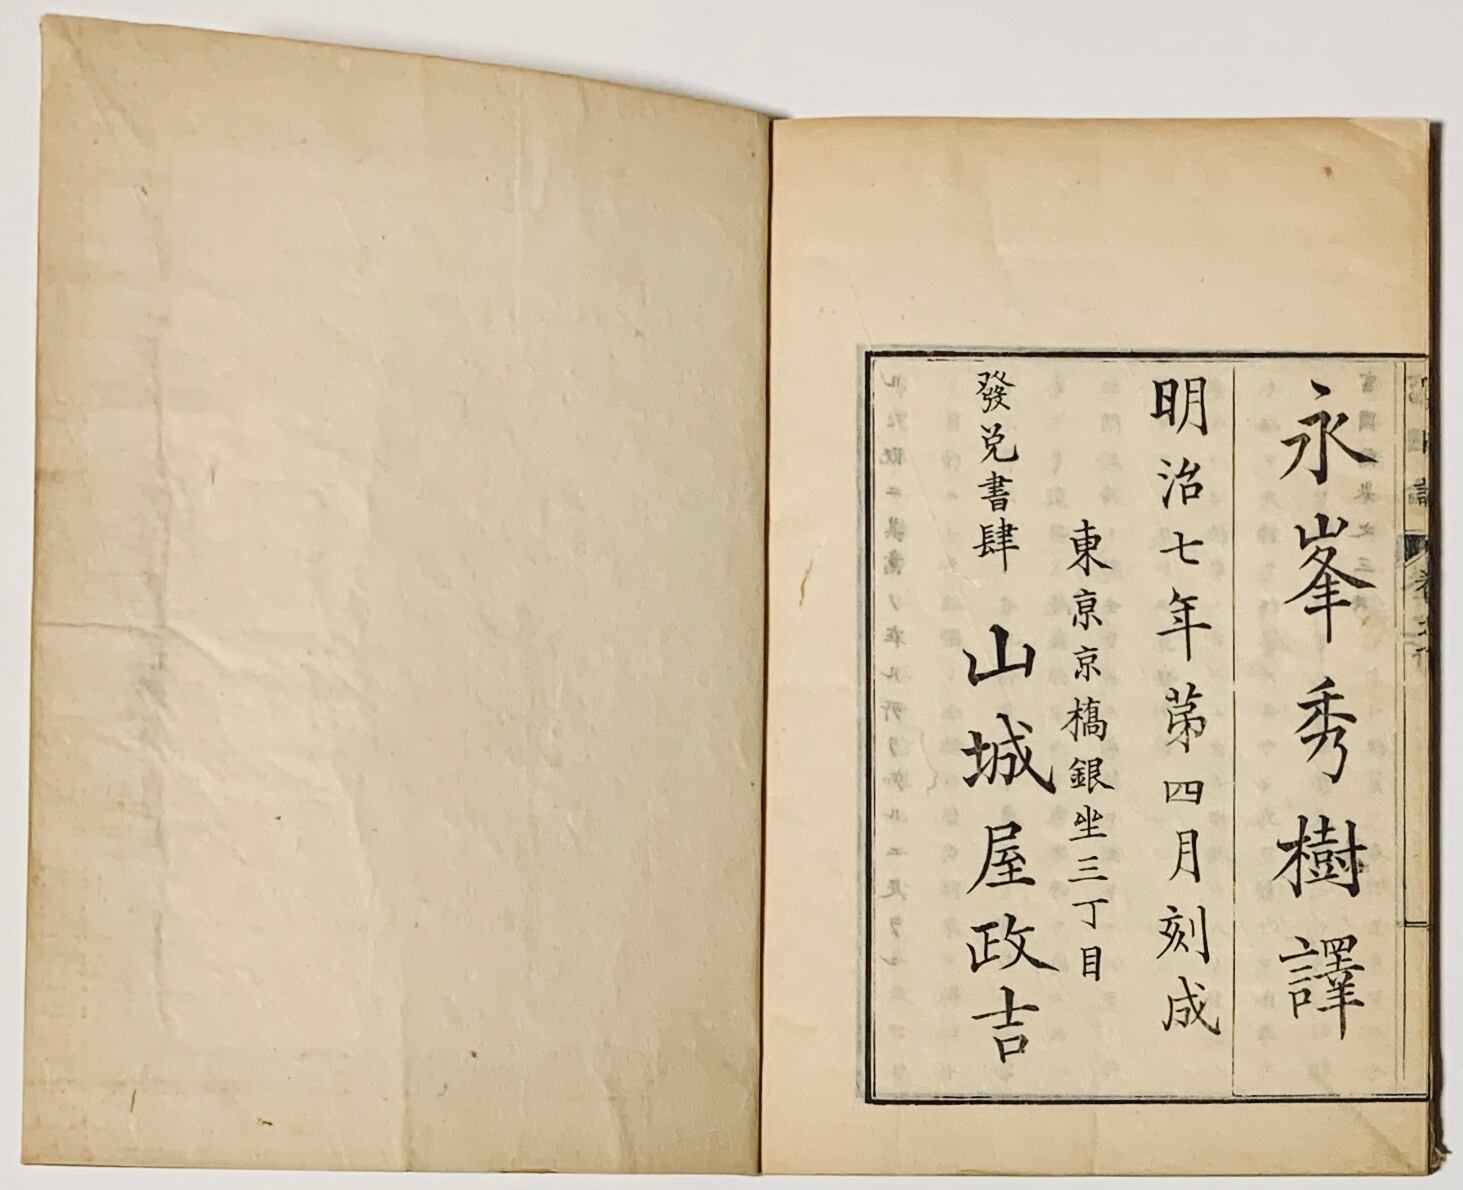 永峯秀樹譯
明治七年第四月刻成
東亰京橋銀坐三丁目
發兌書肆 山城屋政吉